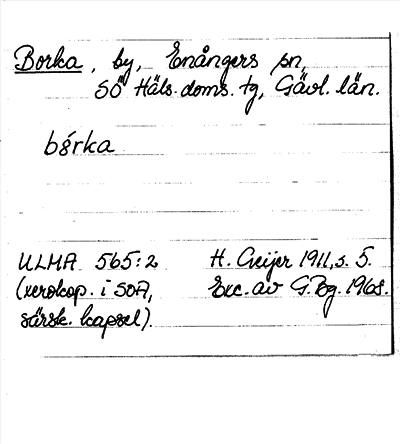 Borka, by, Enångers sn,
SÖ Häls. doms. tg, Gävl. län.
bórka
ULMA 565:2
(xerokop. i SOA,
särsk. kapsel).
H. Geijer 1911, s. 5.
Exc. av G. Bg. 1968.